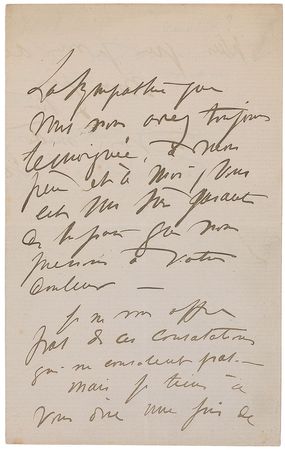 La sympathie que
vous nous avez toujours
témoignée, à mon
père et à moi, vous
est un sûr garant
de la part que nous
prenons à votre
douleur —
Je ne vous offre
pas de ces consolations
qui ne consolent pas —
mais je tiens à
vous dire une fois de